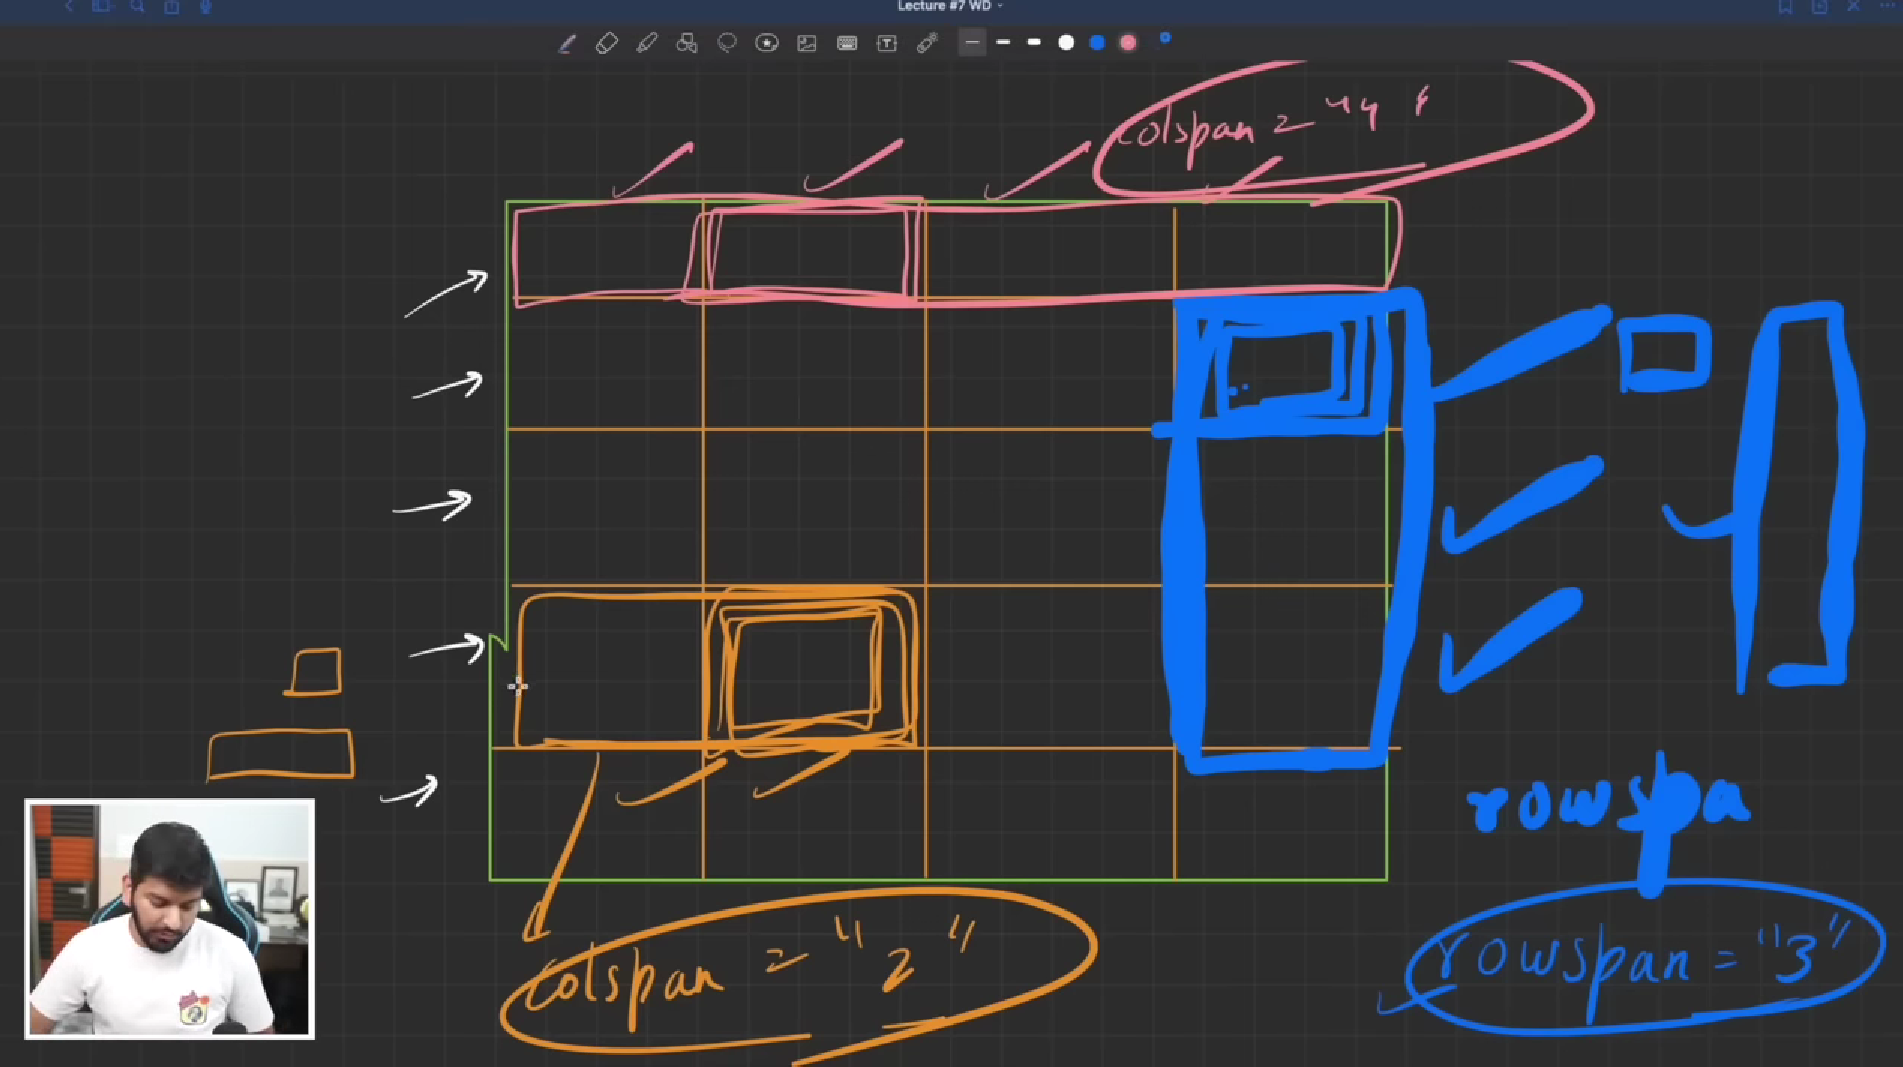 Lecture #7 WD
colspan = "4"
rowspa
colspan = "2"
rowspan = "3"